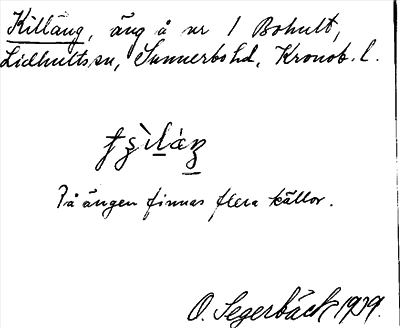 Killäng, äng å nr 1 Bohult,
Lidhults sn, Sunnerbo hd, Kronob. l.
På ängen finnas flera källor.
O. Segerbäck 1939.